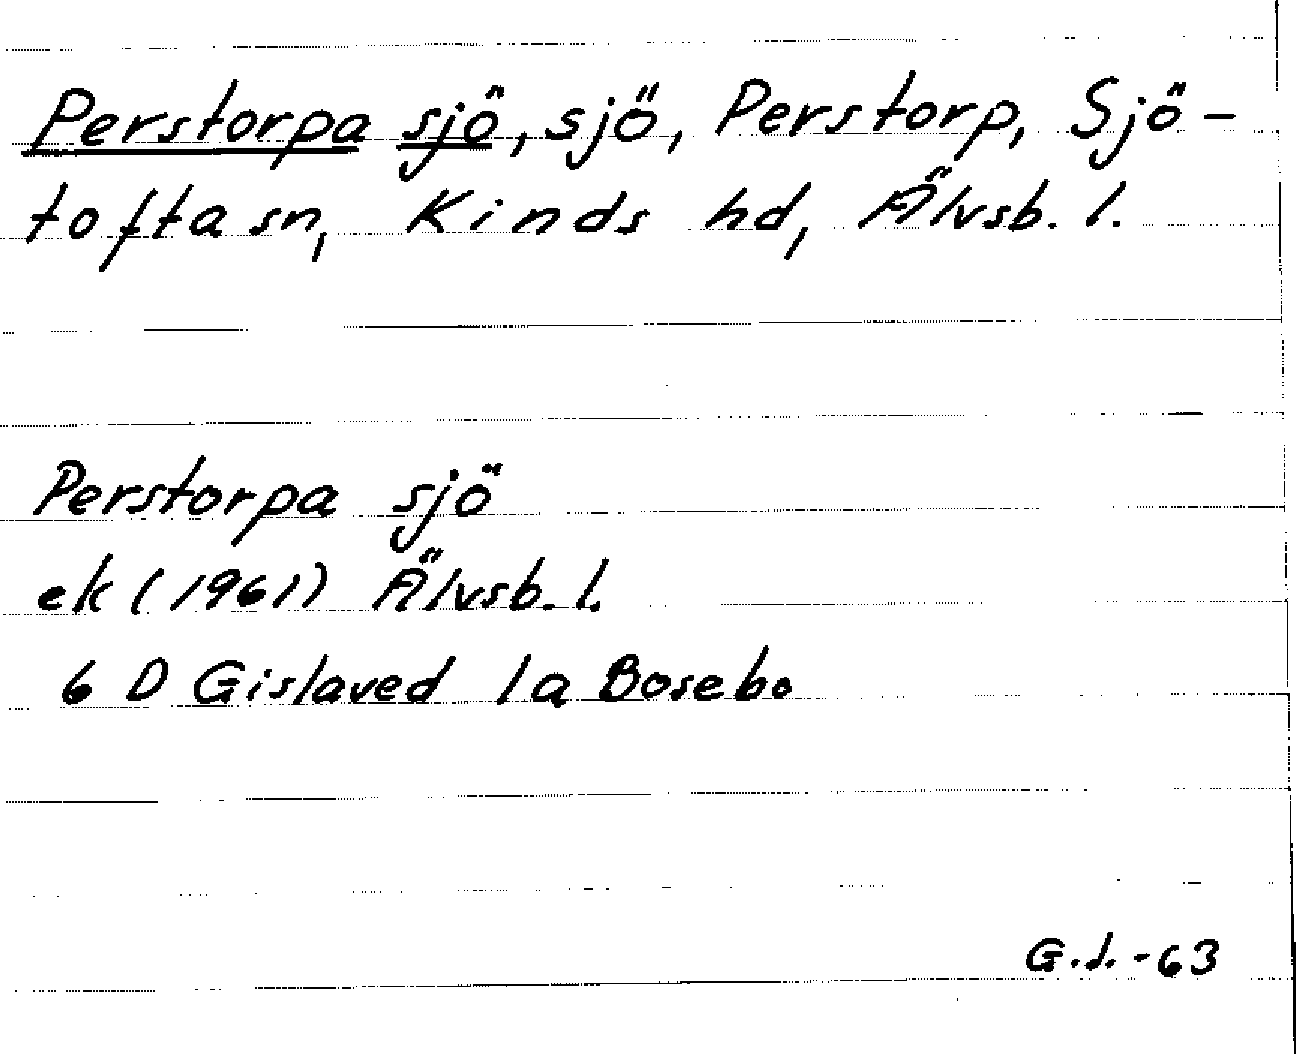 Perstorpa sjö, sjö, Perstorp, Sjö-
tofta sn, Kinds hd, Älvsb. l.
Perstorpa sjö
ek (1961) Älvsb. l.
6 D Gislaved 1a Bosebo
G.J. -63